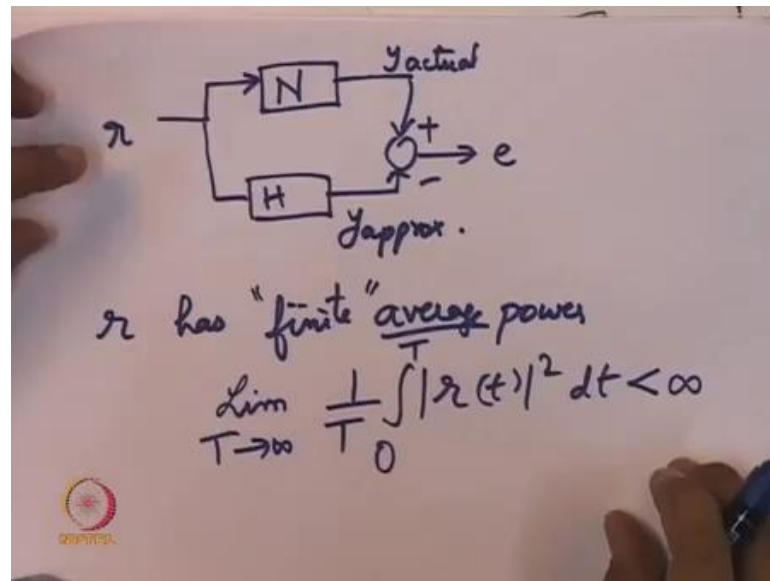 y actual
N
+
r
e
H
-
y approx.
r has "finite" average power
Lim T→∞ 1/T ∫₀ᵀ |r(t)|² dt < ∞
NPTEL